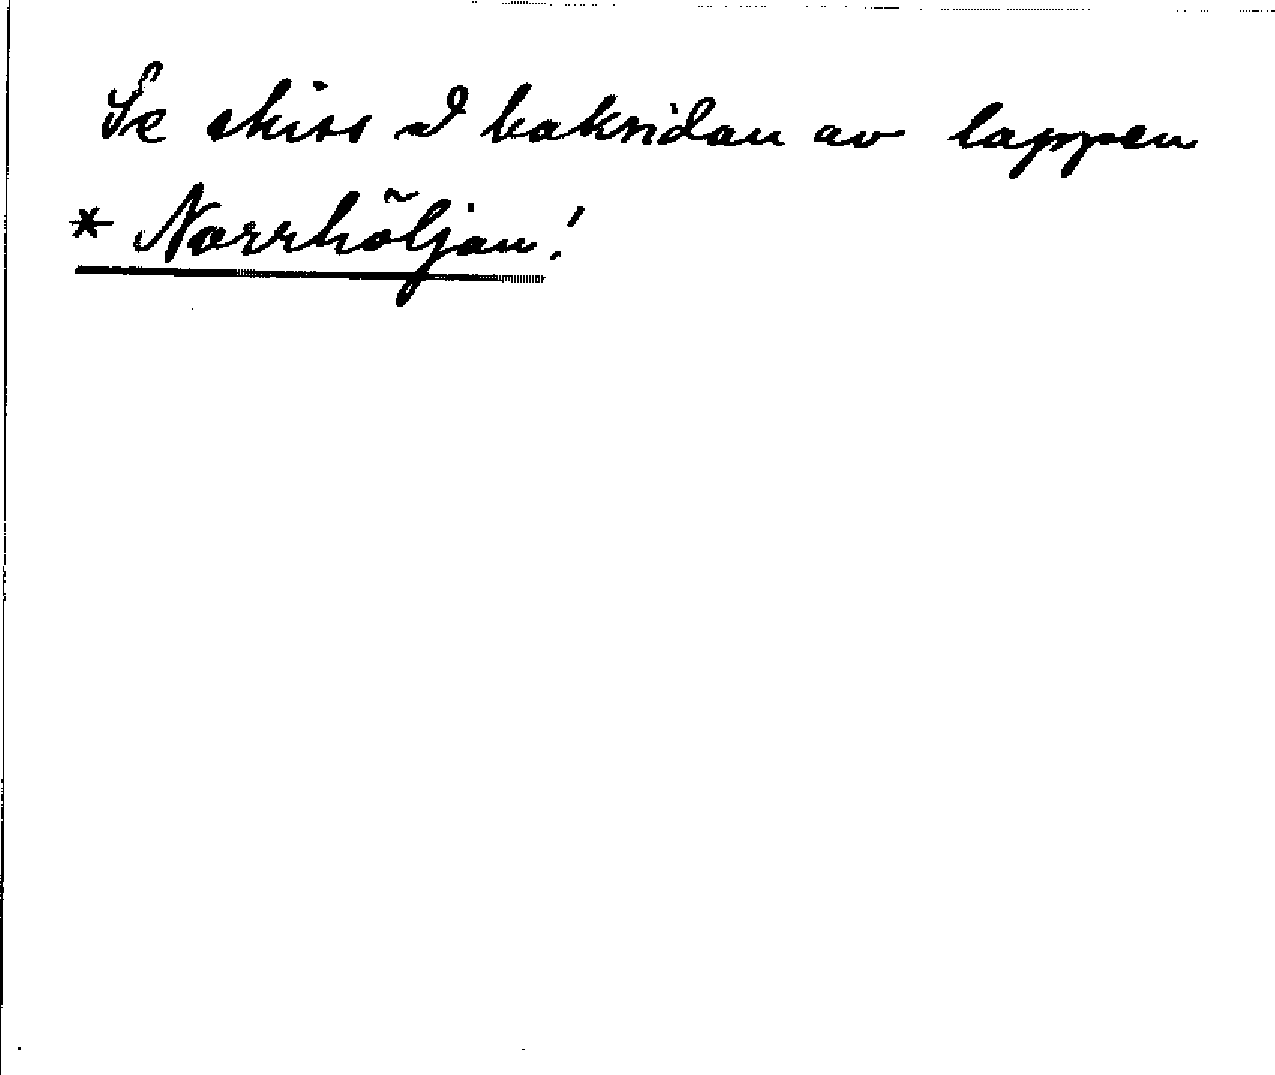 Se skiss å baksidan av lappen
* Norrhöljan!